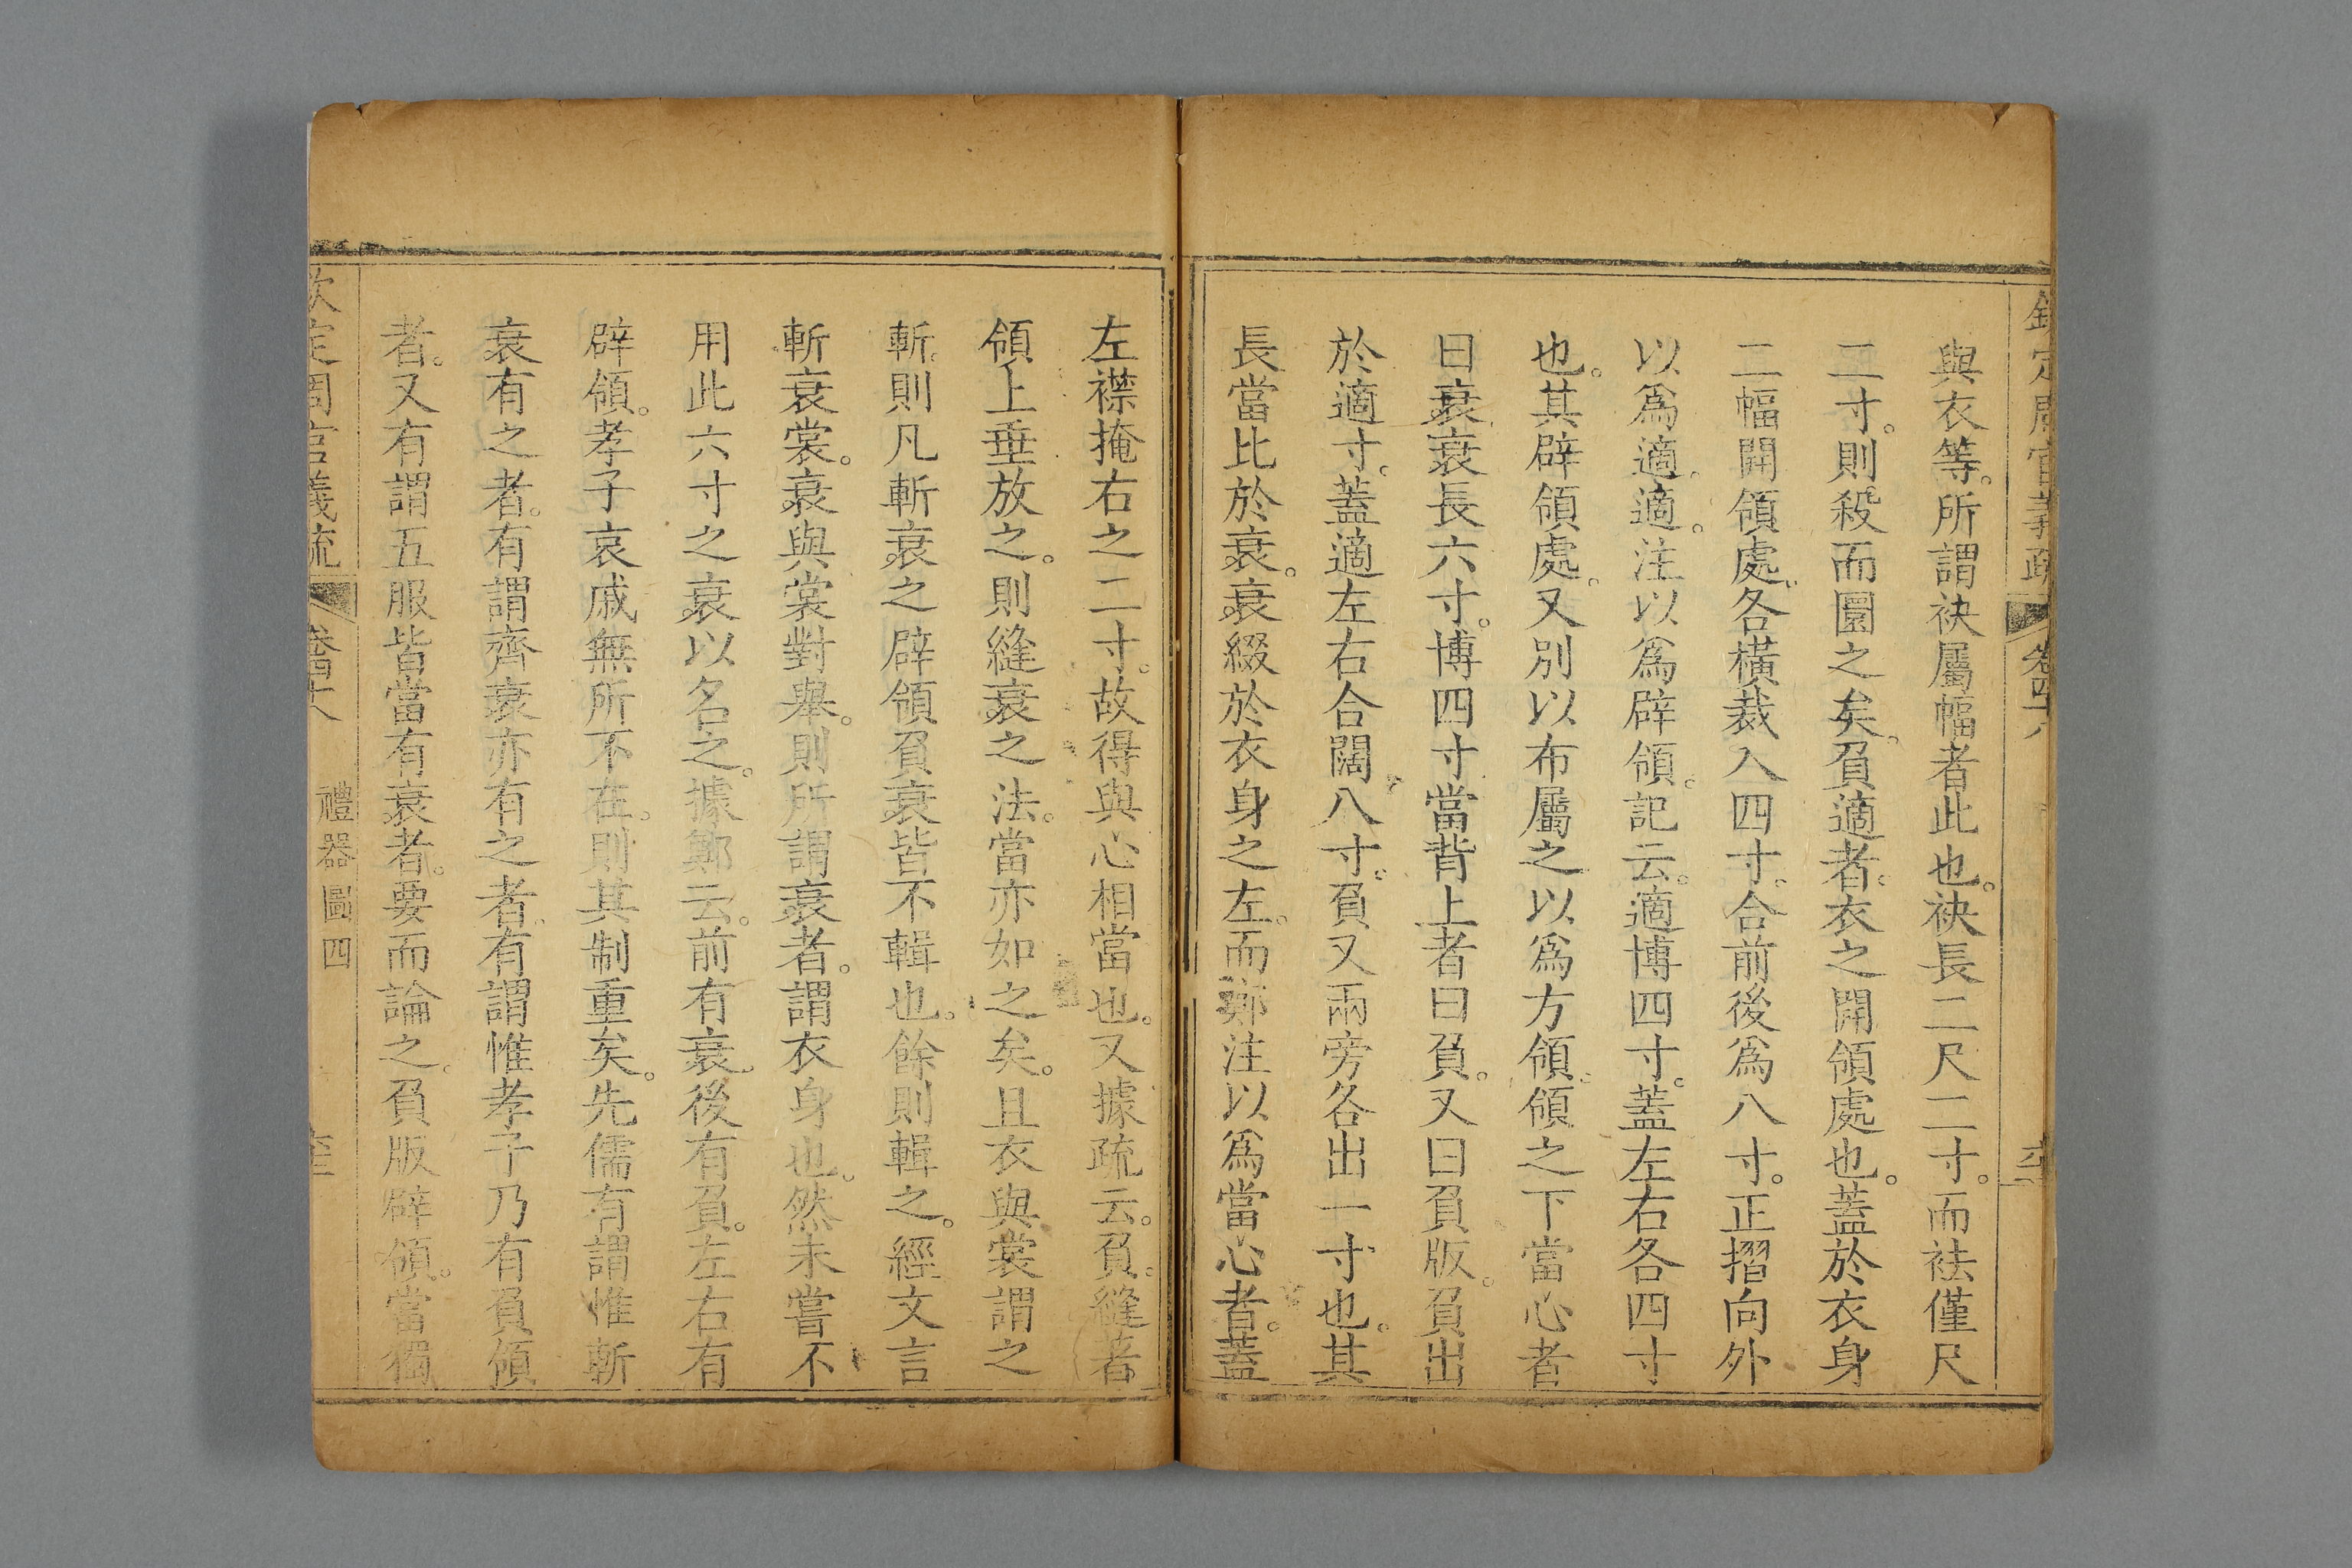 欽定周官義疏 卷四十八
與衣等。所謂袂屬幅者此也。袂長二尺二寸。而袪僅尺
二寸。則殺而圜之矣。負適者。衣之開領處也。蓋於衣身
二幅開領處。各橫裁入四寸。合前後爲八寸。正摺向外
以爲適。適。注以爲辟領。記云。適博四寸。蓋左右各四寸
也。其辟領處。又別以布屬之以爲方領。領之下當心者
曰衰。衰長六寸。博四寸。當背上者曰負。又曰負版。負出
於適寸。蓋適左右合闊八寸。負又兩旁各出一寸也。其
長當比於衰。衰綴於衣身之左。而鄭注以爲當心者。蓋
左襟掩右之二寸。故得與心相當也。又據疏云。負。縫著
領上垂放之。則縫衰之法。當亦如之矣。且衣與裳謂之
斬。則凡斬衰之辟領負衰皆不輯也。餘則輯之。經文言
斬衰裳。衰與裳對舉。則所謂衰者。謂衣身也。然未嘗不
用此六寸之衰以名之。據鄭云。前有衰。後有負。左右有
辟領。孝子哀戚無所不在。則其制重矣。先儒有謂惟斬
衰有之者。有謂齊衰亦有之者。有謂惟孝子乃有負領
者。又有謂五服皆當有衰者。要而論之。負版辟領。當獨
欽定周官義疏 卷四十八 禮器圖四